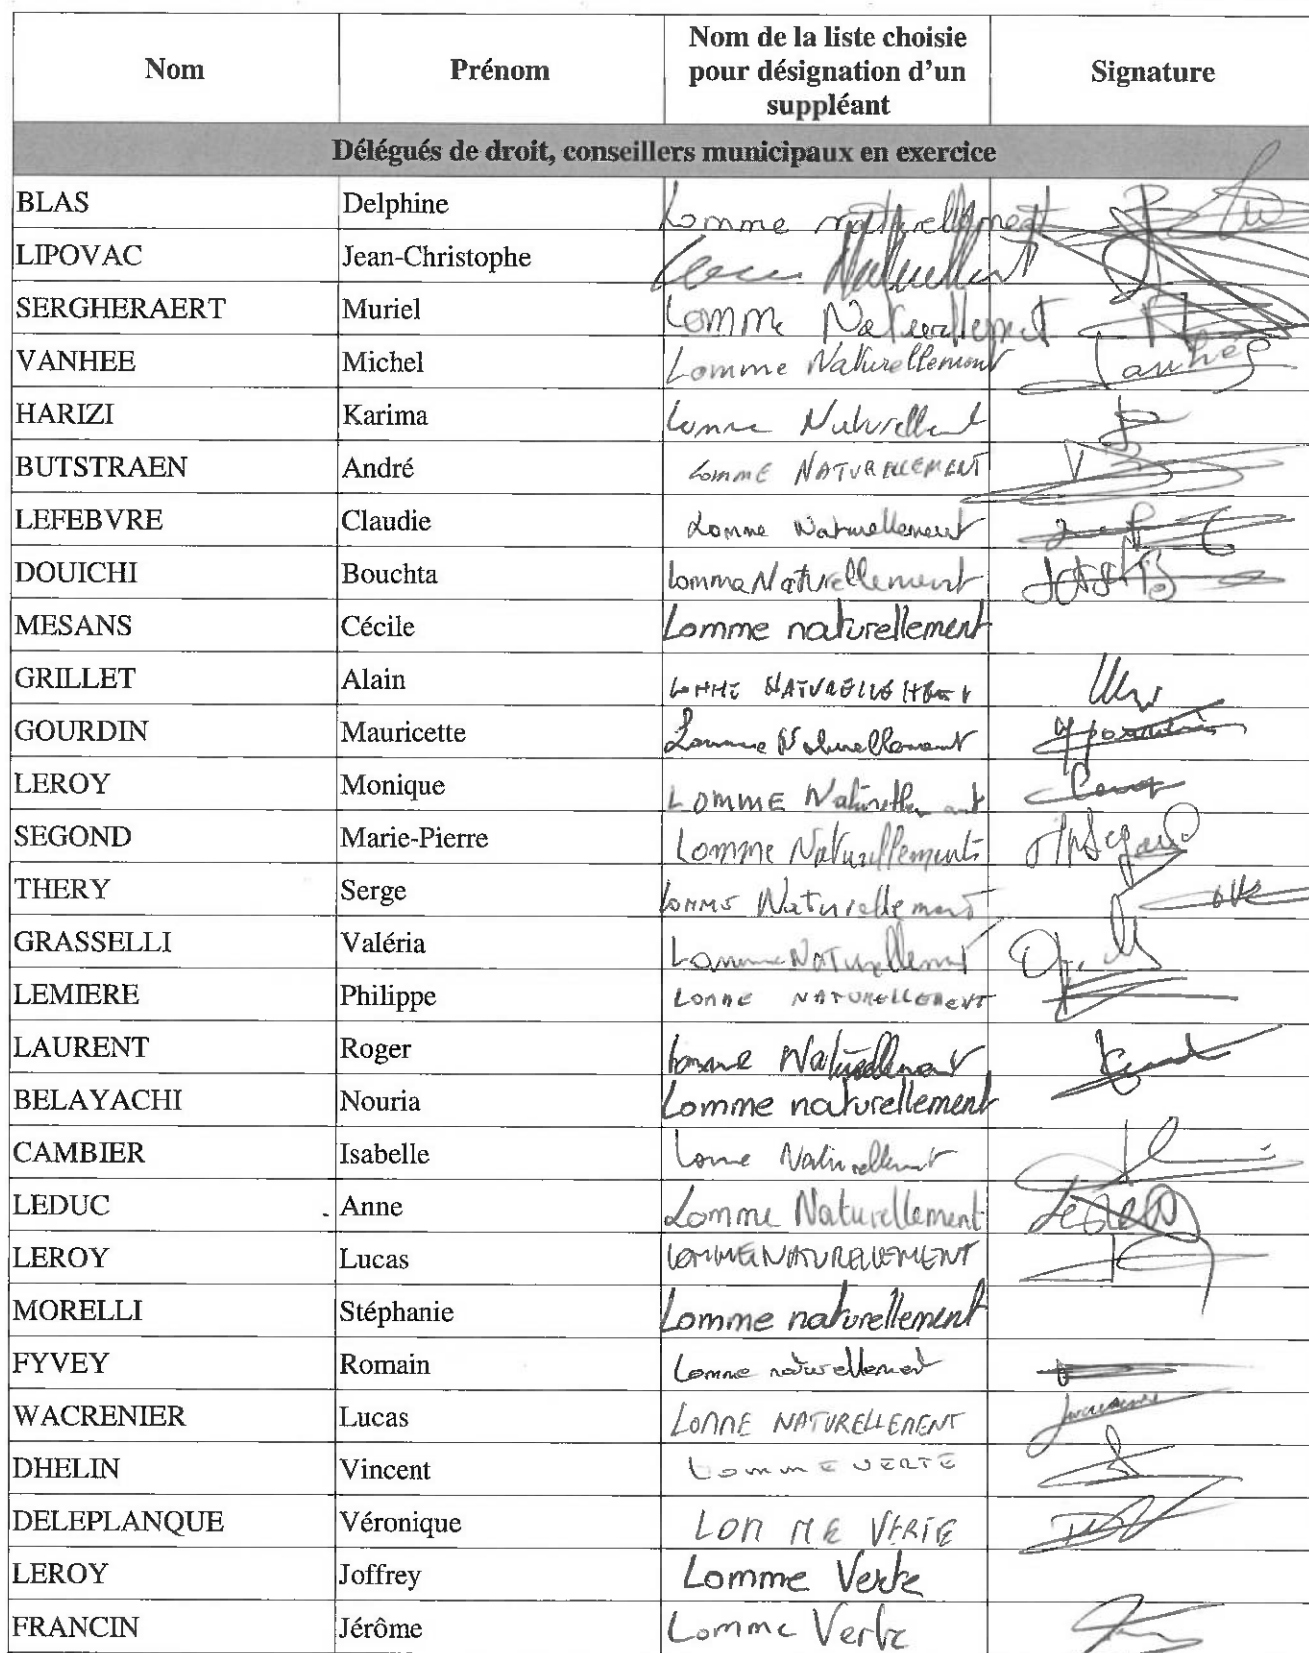 Nom Prénom Nom de la liste choisie pour désignation d'un suppléant Signature
Délégués de droit, conseillers municipaux en exercice
BLAS Delphine Lomme naturellement
LIPOVAC Jean-Christophe Naturellement
SERGHERAERT Muriel Lomme Naturellement
VANHEE Michel Lomme Naturellement Vanhée
HARIZI Karima Lomme Naturellement
BUTSTRAEN André Lomme NATURELLEMENT
LEFEBVRE Claudie Lomme Naturellement
DOUICHI Bouchta Lomme Naturellement
MESANS Cécile Lomme naturellement
GRILLET Alain LOMME NATURELLEMENT
GOURDIN Mauricette Lomme Naturellement
LEROY Monique LOMME Naturellement
SEGOND Marie-Pierre Lomme Naturellement
THERY Serge LOMME Naturellement
GRASSELLI Valéria Lomme Naturellement
LEMIERE Philippe LOMME NATURELLEMENT
LAURENT Roger Lomme Naturellement
BELAYACHI Nouria Lomme naturellement
CAMBIER Isabelle Lomme Naturellement
LEDUC Anne Lomme Naturellement
LEROY Lucas LOMME NATURELLEMENT
MORELLI Stéphanie Lomme naturellement
FYVEY Romain Lomme naturellement
WACRENIER Lucas LOMME NATURELLEMENT
DHELIN Vincent LOMME VERTE
DELEPLANQUE Véronique LOMME VERTE
LEROY Joffrey Lomme Verte
FRANCIN Jérôme Lomme Verte